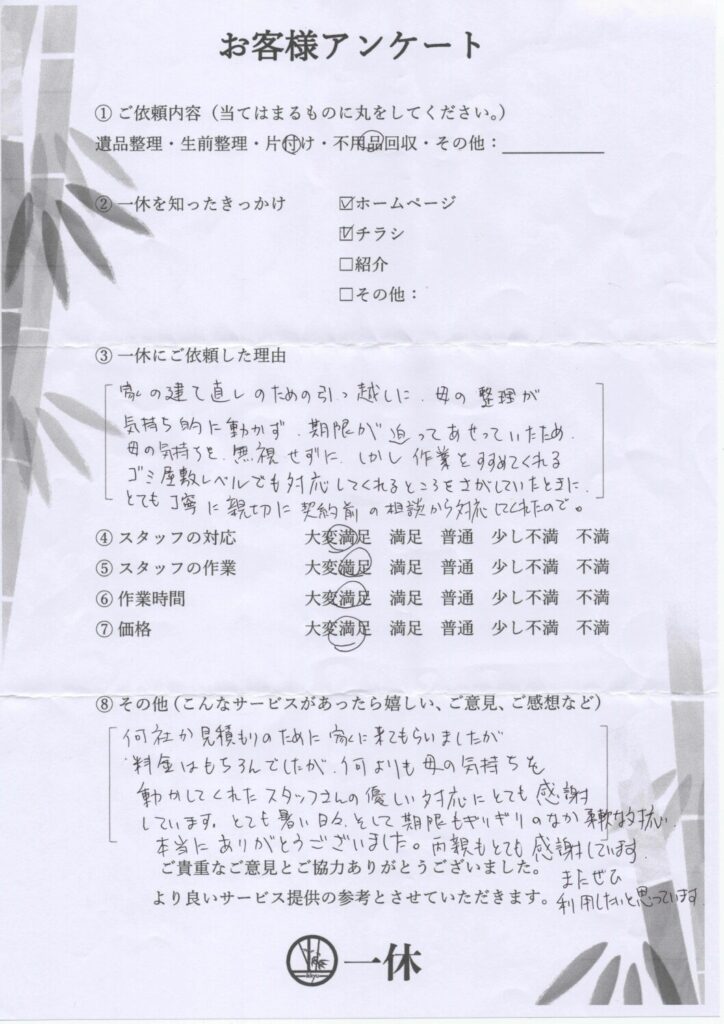 お客様アンケート
① ご依頼内容（当てはまるものに丸をしてください。）
遺品整理・生前整理・片付け・不用品回収・その他：
② 一休を知ったきっかけ
☑ホームページ
☑チラシ
□紹介
□その他：
③ 一休にご依頼した理由
家の建て直しのための引っ越しに、母の整理が
気持ち的に動かず、期限が迫ってあせっていたため、
母の気持ちを、無視せずに、しかし作業をすすめてくれる
ゴミ屋敷レベルでも対応してくれるところをさがしていたときに、
とても丁寧に親切に契約前の相談から対応してくれたので。
④ スタッフの対応 大変満足 満足 普通 少し不満 不満
⑤ スタッフの作業 大変満足 満足 普通 少し不満 不満
⑥ 作業時間 大変満足 満足 普通 少し不満 不満
⑦ 価格 大変満足 満足 普通 少し不満 不満
⑧ その他（こんなサービスがあったら嬉しい、ご意見、ご感想など）
何社か見積もりのために家に来てもらいましたが
料金はもちろんでしたが、何よりも母の気持ちを
動かしてくれたスタッフさんの優しい対応にとても感謝
しています。とても暑い日々、そして期限もギリギリのなか柔軟な対応、
本当にありがとうございました。両親もとても感謝しています。
またぜひ
利用したいと思っています
ご貴重なご意見とご協力ありがとうございました。
より良いサービス提供の参考とさせていただきます。
一休